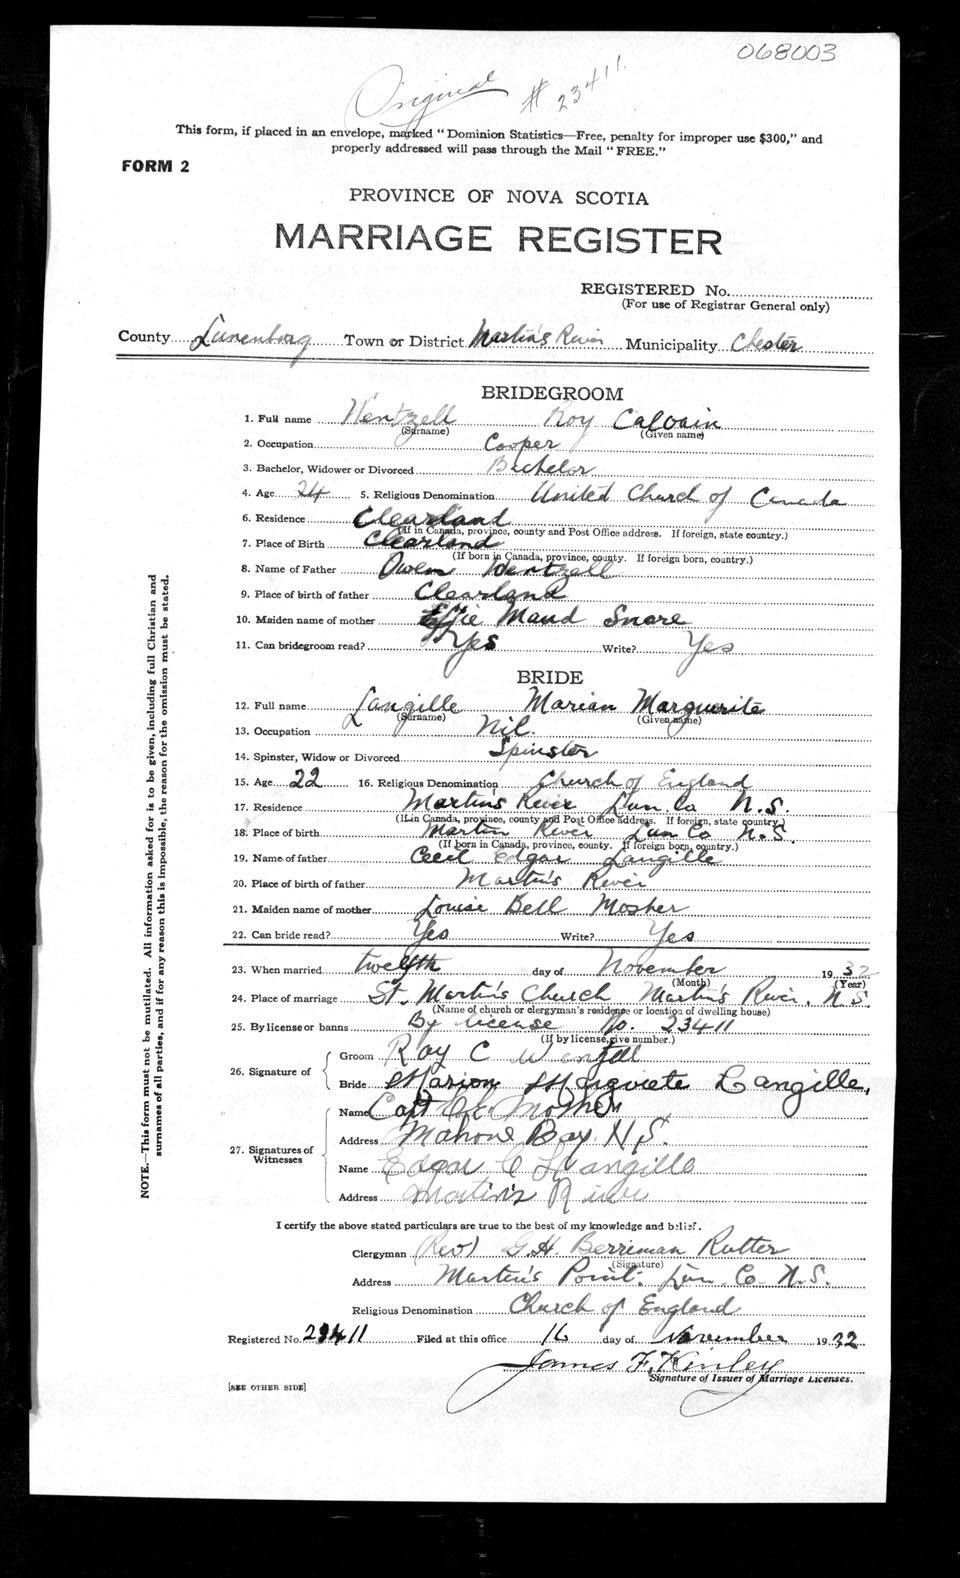 068003
Original # 23411.
This form, if placed in an envelope, marked "Dominion Statistics—Free, penalty for improper use $300," and
properly addressed will pass through the Mail "FREE."
FORM 2
PROVINCE OF NOVA SCOTIA
MARRIAGE REGISTER
REGISTERED No.
(For use of Registrar General only)
County Lunenburg Town or District Martin's River Municipality Chester
BRIDEGROOM
1. Full name Wentzell Roy Calvain
(Surname) (Given name)
2. Occupation Cooper
3. Bachelor, Widower or Divorced Bachelor
4. Age 24 5. Religious Denomination United Church of Canada
6. Residence Clearland
(If in Canada, province, county and Post Office address. If foreign, state country.)
7. Place of Birth Clearland
(If born in Canada, province, county. If foreign born, country.)
8. Name of Father Owen Wentzell
9. Place of birth of father Clearland
10. Maiden name of mother Effie Maud Snare
11. Can bridegroom read? Yes Write? Yes
BRIDE
12. Full name Langille Marian Marguerite
(Surname) (Given name)
13. Occupation Nil.
14. Spinster, Widow or Divorced Spinster
15. Age 22 16. Religious Denomination Church of England
17. Residence Martins River Lun. Co N.S.
(If in Canada, province, county and Post Office address. If foreign, state country.)
18. Place of birth Martin River Lun Co N.S.
(If born in Canada, province, county. If foreign born, country.)
19. Name of father Cecil Edgar Langille
20. Place of birth of father Martin's River
21. Maiden name of mother Louise Bell Mosher
22. Can bride read? Yes Write? Yes
23. When married twelfth day of November 1932
(Month) (Year)
24. Place of marriage St. Martin's Church Martin's River, N.S.
(Name of church or clergyman's residence or location of dwelling house)
25. By license or banns By license No. 23411
(If by license, give number.)
26. Signature of
Groom Roy C Wentzell
Bride Marion Marguiete Langille,
27. Signatures of Witnesses
Name Capt
Address Mahone Bay N.S.
Name Edgar C Langille
Address Martins River
I certify the above stated particulars are true to the best of my knowledge and belief.
Clergyman (Rev) G.H. Berriman Rutter
(Signature)
Address Martin's Point. Lun. Co. N.S.
Religious Denomination Church of England
Registered No. 23411 Filed at this office 16 day of November 1932
James F. Kinley
Signature of Issuer of Marriage Licenses.
[SEE OTHER SIDE]
NOTE.—This form must not be mutilated. All information asked for is to be given, including full Christian and
surnames of all parties, and if for any reason this is impossible, the reason for the omission must be stated.